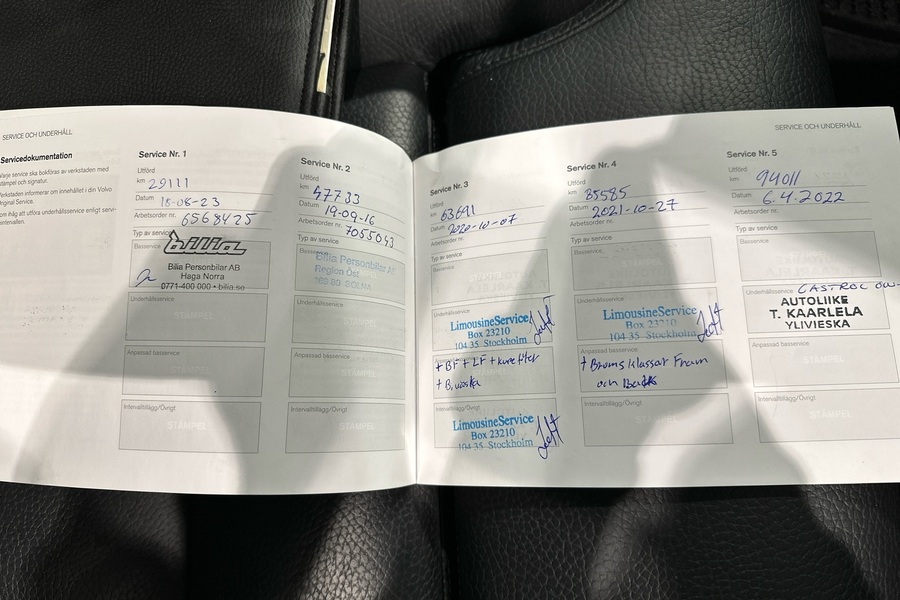 SERVICE OCH UNDERHÅLL
Servicedokumentation
Varje service ska bokföras av verkstaden med
stämpel och signatur.
Verkstaden informerar om innehållet i din Volvo
Original Service.
Kom ihåg att utföra underhållsservice enligt serv-
Service Nr. 1
Utförd
km 29111
Datum 18-08-23
Arbetsorder nr. 6568425
Typ av service
Basservice
bilia
Bilia Personbilar AB
Haga Norra
0771-400 000 • bilia.se
Underhållsservice
STÄMPEL
Anpassad basservice
STÄMPEL
Intervalltillägg/Övrigt
STÄMPEL
Service Nr. 2
Utförd
km 47733
Datum 19-09-16
Arbetsorder nr. 7055043
Typ av service
Basservice
Bilia Personbilar AB
Region Öst
169 80 SOLNA
Underhållsservice
STÄMPEL
Anpassad basservice
STÄMPEL
Intervalltillägg/Övrigt
STÄMPEL
SERVICE OCH UNDERHÅLL
Service Nr. 3
Utförd
km 63691
Datum 2020-10-07
Arbetsorder nr.
Typ av service
Basservice
Underhållsservice
LimousineService
Box 23210
104 35 Stockholm
Anpassad basservice
+ BF + LF + kupefilter
+ B.vätska
Intervalltillägg/Övrigt
LimousineService
Box 23210
104 35 Stockholm
Service Nr. 4
Utförd
km 85585
Datum 2021-10-27
Arbetsorder nr.
Typ av service
Basservice
Underhållsservice
LimousineService
Box 23210
104 35 Stockholm
Anpassad basservice
+ Bromsklossar Fram
och Bak
Intervalltillägg/Övrigt
STÄMPEL
Service Nr. 5
Utförd
km 94011
Datum 6.4.2022
Arbetsorder nr.
Typ av service
Basservice
Underhållsservice
CASTROL OW-
AUTOLIIKE
T. KAARLELA
YLIVIESKA
Anpassad basservice
STÄMPEL
Intervalltillägg/Övrigt
STÄMPEL